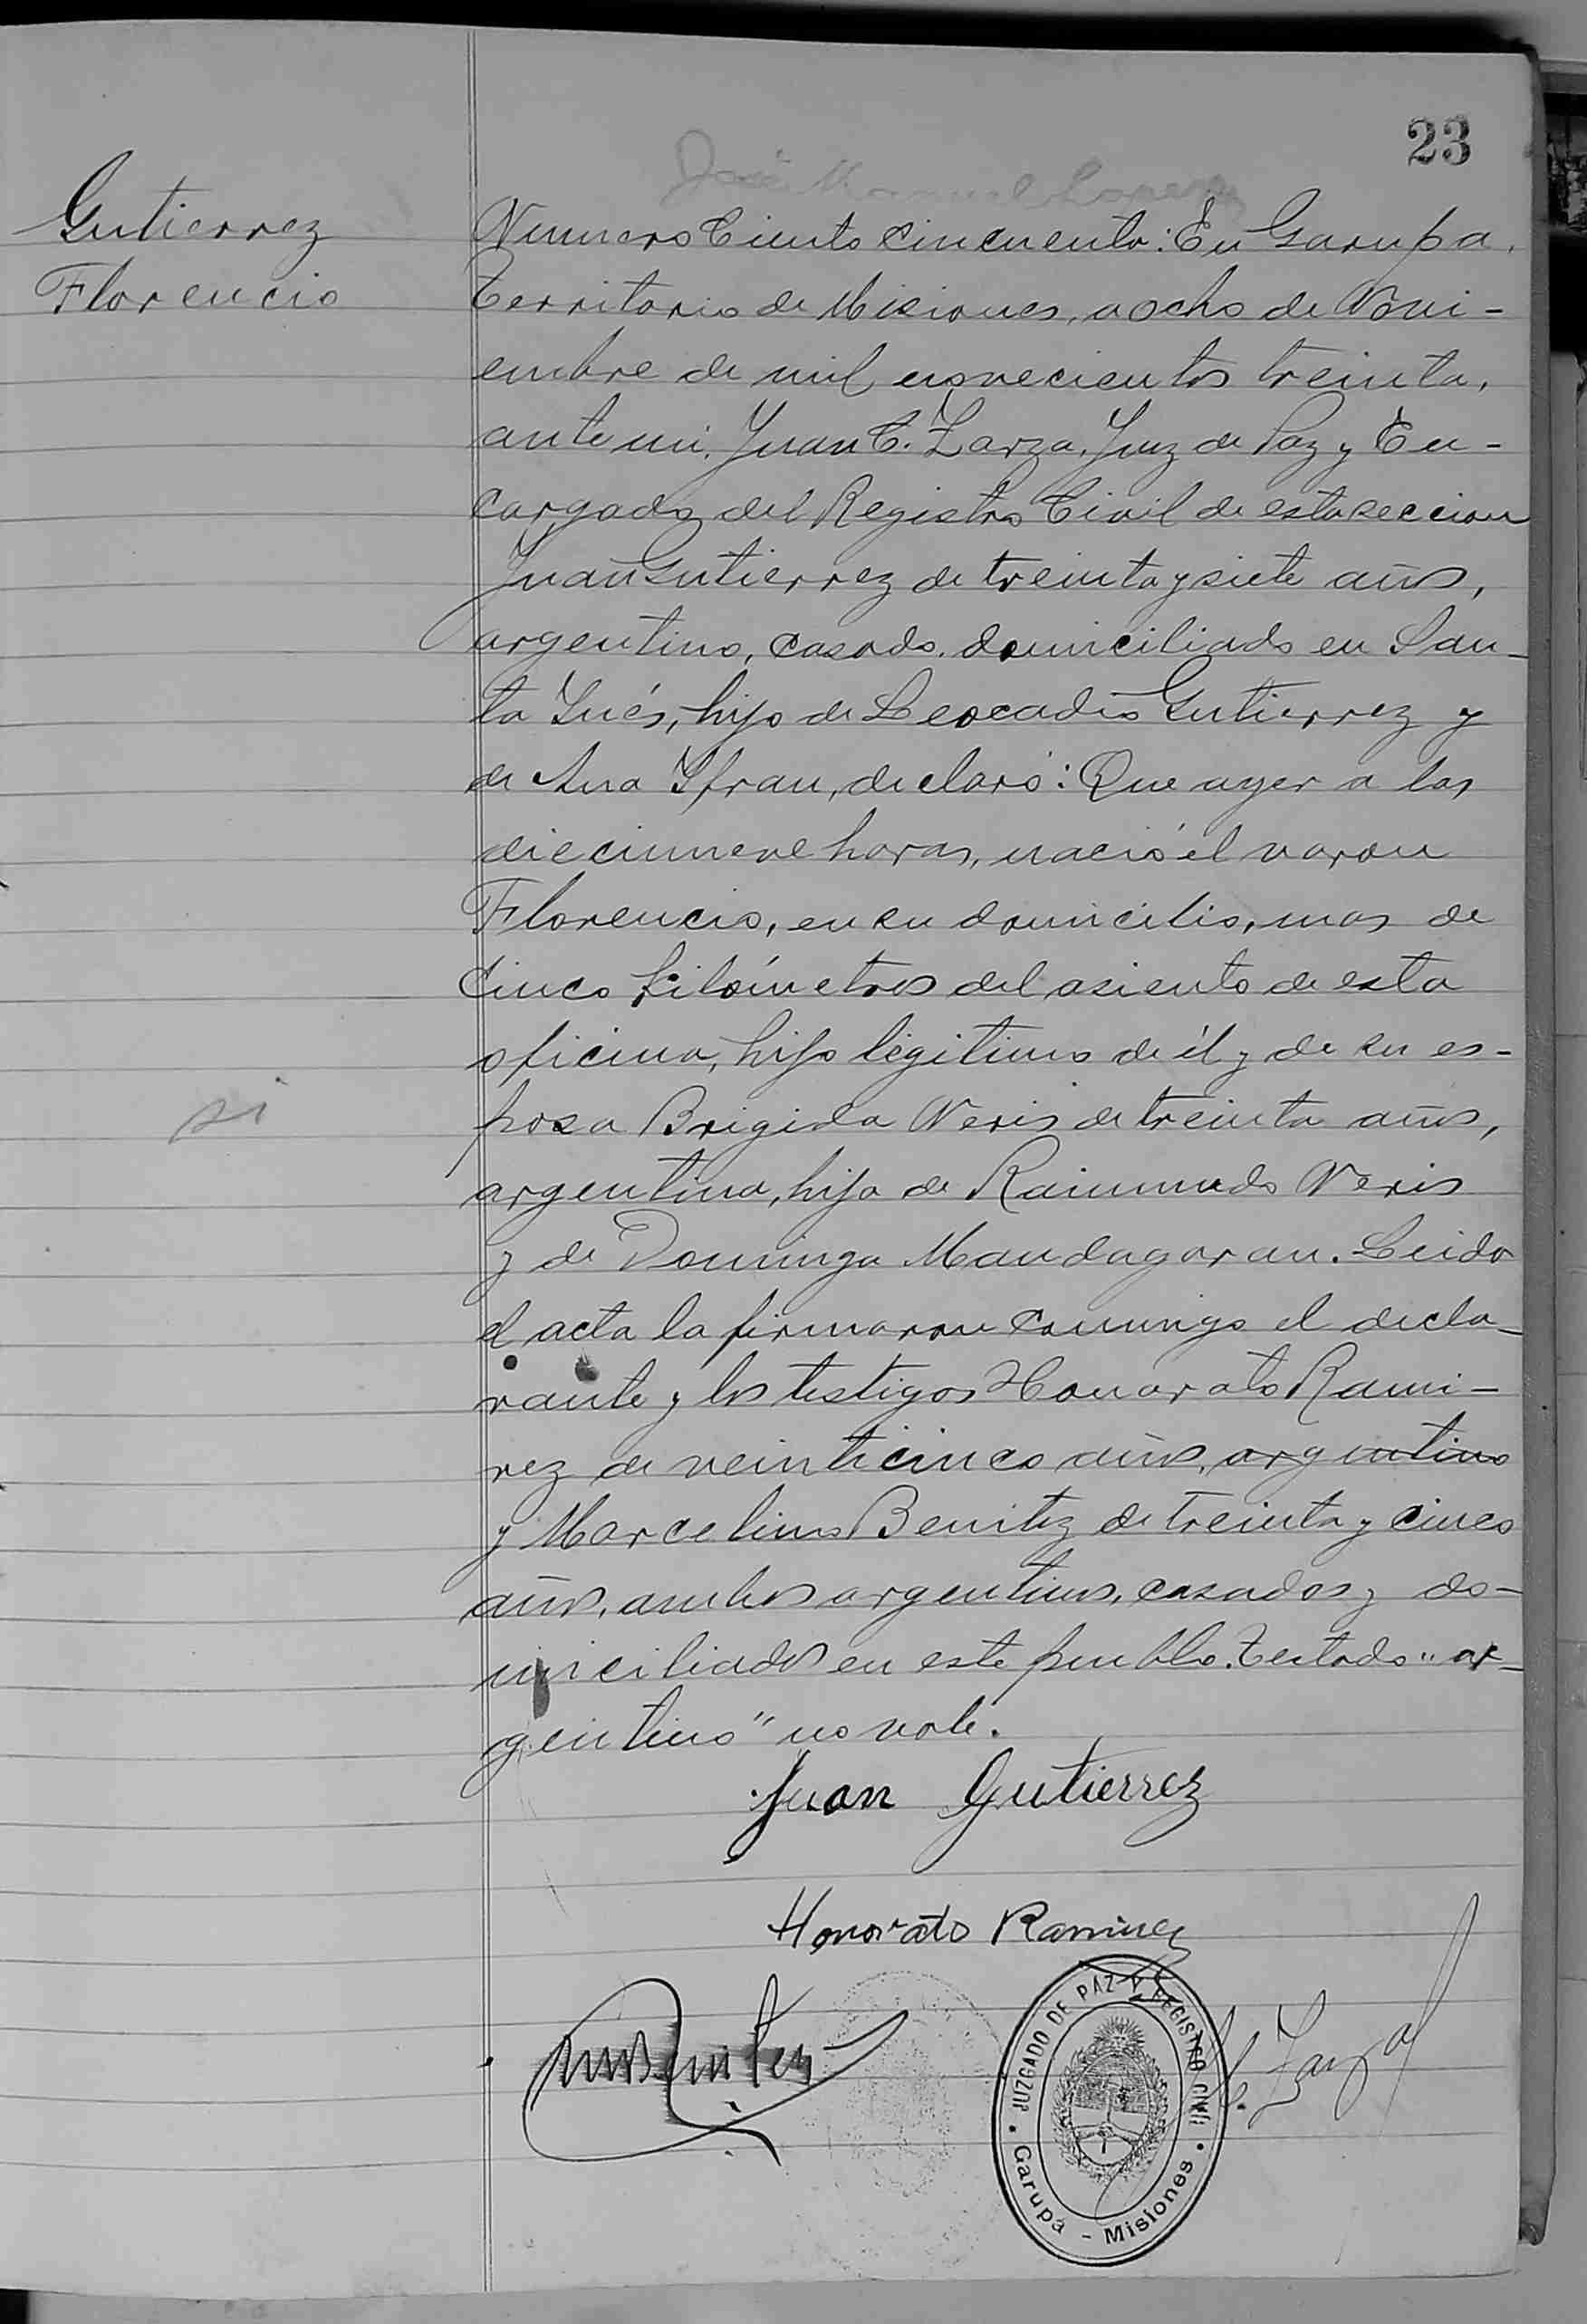 23
José Manuel Lopez
Gutierrez
Florencio
Numero Ciento cincuenta: En Garupa,
Territorio de Misiones, a ocho de Novi-
embre de mil novecientos treinta,
ante mi, Juan C. Zarza, Juez de Paz y En-
cargado del Registro Civil de esta seccion
Juan Gutierrez de treinta y siete años,
argentino, casado, domiciliado en San-
ta Inés, hijo de Leocadio Gutierrez y
de Ana Ifran, declaró: Que ayer a las
diecinueve horas, nació el varon
Florencio, en su domicilio, mas de
cinco kilómetros del asiento de esta
oficina, hijo legitimo de él y de su es-
posa Brigida Neris de treinta años,
argentina, hija de Raimundo Neris
y de Dominga Mandagaran. Leida
el acta la firmaron conmigo el decla-
rante y los testigos Honorato Rami-
rez de veinticinco años, argentino
y Marcelino Benitez de treinta y cinco
años, ambos argentinos, casados y do-
miciliados en este pueblo. Testado "ar-
gentino" no vale.
si
Juan Gutierrez
Honorato Ramirez
M Benitez
J. C. Zarza
JUZGADO DE PAZ Y REGISTRO CIVIL
Garupá - Misiones